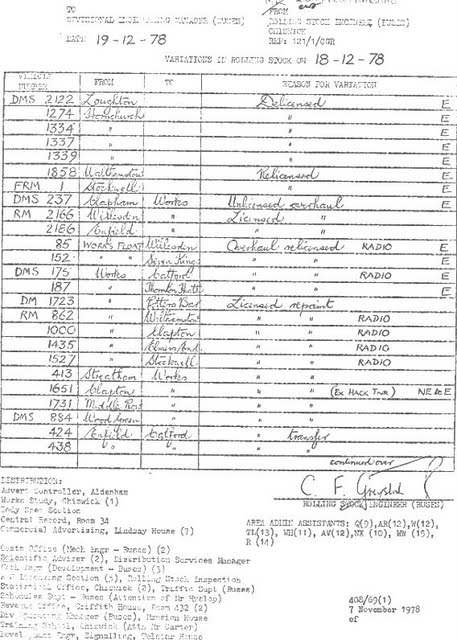 TO
FROM
DIVISIONAL ENGINEERING MANAGER (BUSES)
ROLLING STOCK ENGINEER (BUSES)
CHISWICK
DATE 19-12-78
REF: 121/1/CGR
VARIATIONS IN ROLLING STOCK ON 18-12-78
VEHICLE NUMBER FROM TO REASON FOR VARIATION
DMS 2122 Loughton Delicensed E
1274 Hornchurch " E
1334 " " E
1337 " " E
1339 " " E
1858 Walthamstow Relicensed E
FRM 1 Stockwell " E
DMS 237 Clapham Works Unlicensed overhaul E
RM 2166 Willesden " Licensed " E
2186 Enfield " " " E
85 WORKS FLOAT Willesden Overhaul relicensed RADIO E
152 " " Seven Kings " " E
DMS 175 Works Catford " " RADIO E
187 " Thornton Heath " " E
DM 1723 " Potters Bar Licensed repaint
RM 862 " Walthamstow " " RADIO
1000 " Clapton " " RADIO
1435 " " " RADIO
1527 " Stockwell " " RADIO
413 Streatham Works " "
1651 Clapton " " " (Ex HACK TNR) NE to E
1731 Middle Row " " "
DMS 884 Wood Green " " "
424 Enfield Catford " transfer
438 " " " "
continued over
ROLLING STOCK ENGINEER (BUSES)
DISTRIBUTION:
Advert Controller, Aldenham
Works Study, Chiswick (1)
Body Spec Section
Central Record, Room 34
Commercial Advertising, Lindsay House (7)
AREA ADMIN ASSISTANTS: Q(9), AR(12), W(12),
TL(13), WH(11), AV(12), NX (10), WN (15),
R (14)
Costs Office (Mech Engr - Buses) (2)
Scientific Adviser (2), Distribution Services Manager
Engr (Development - Buses) (3)
and Licensing Section (3), Rolling Stock Inspection
Statistical Office, Chiswick (2), Traffic Supt (Buses)
Schedules Supt - Buses (Attention of Mr Heslop)
Revenue Office, Griffith House, Room 432 (2)
Manager (Buses), Mansion House
Training School, Chiswick (Attn Mr Carter)
Engr, Signalling, Telstar House
408/69(1)
7 November 1978
of